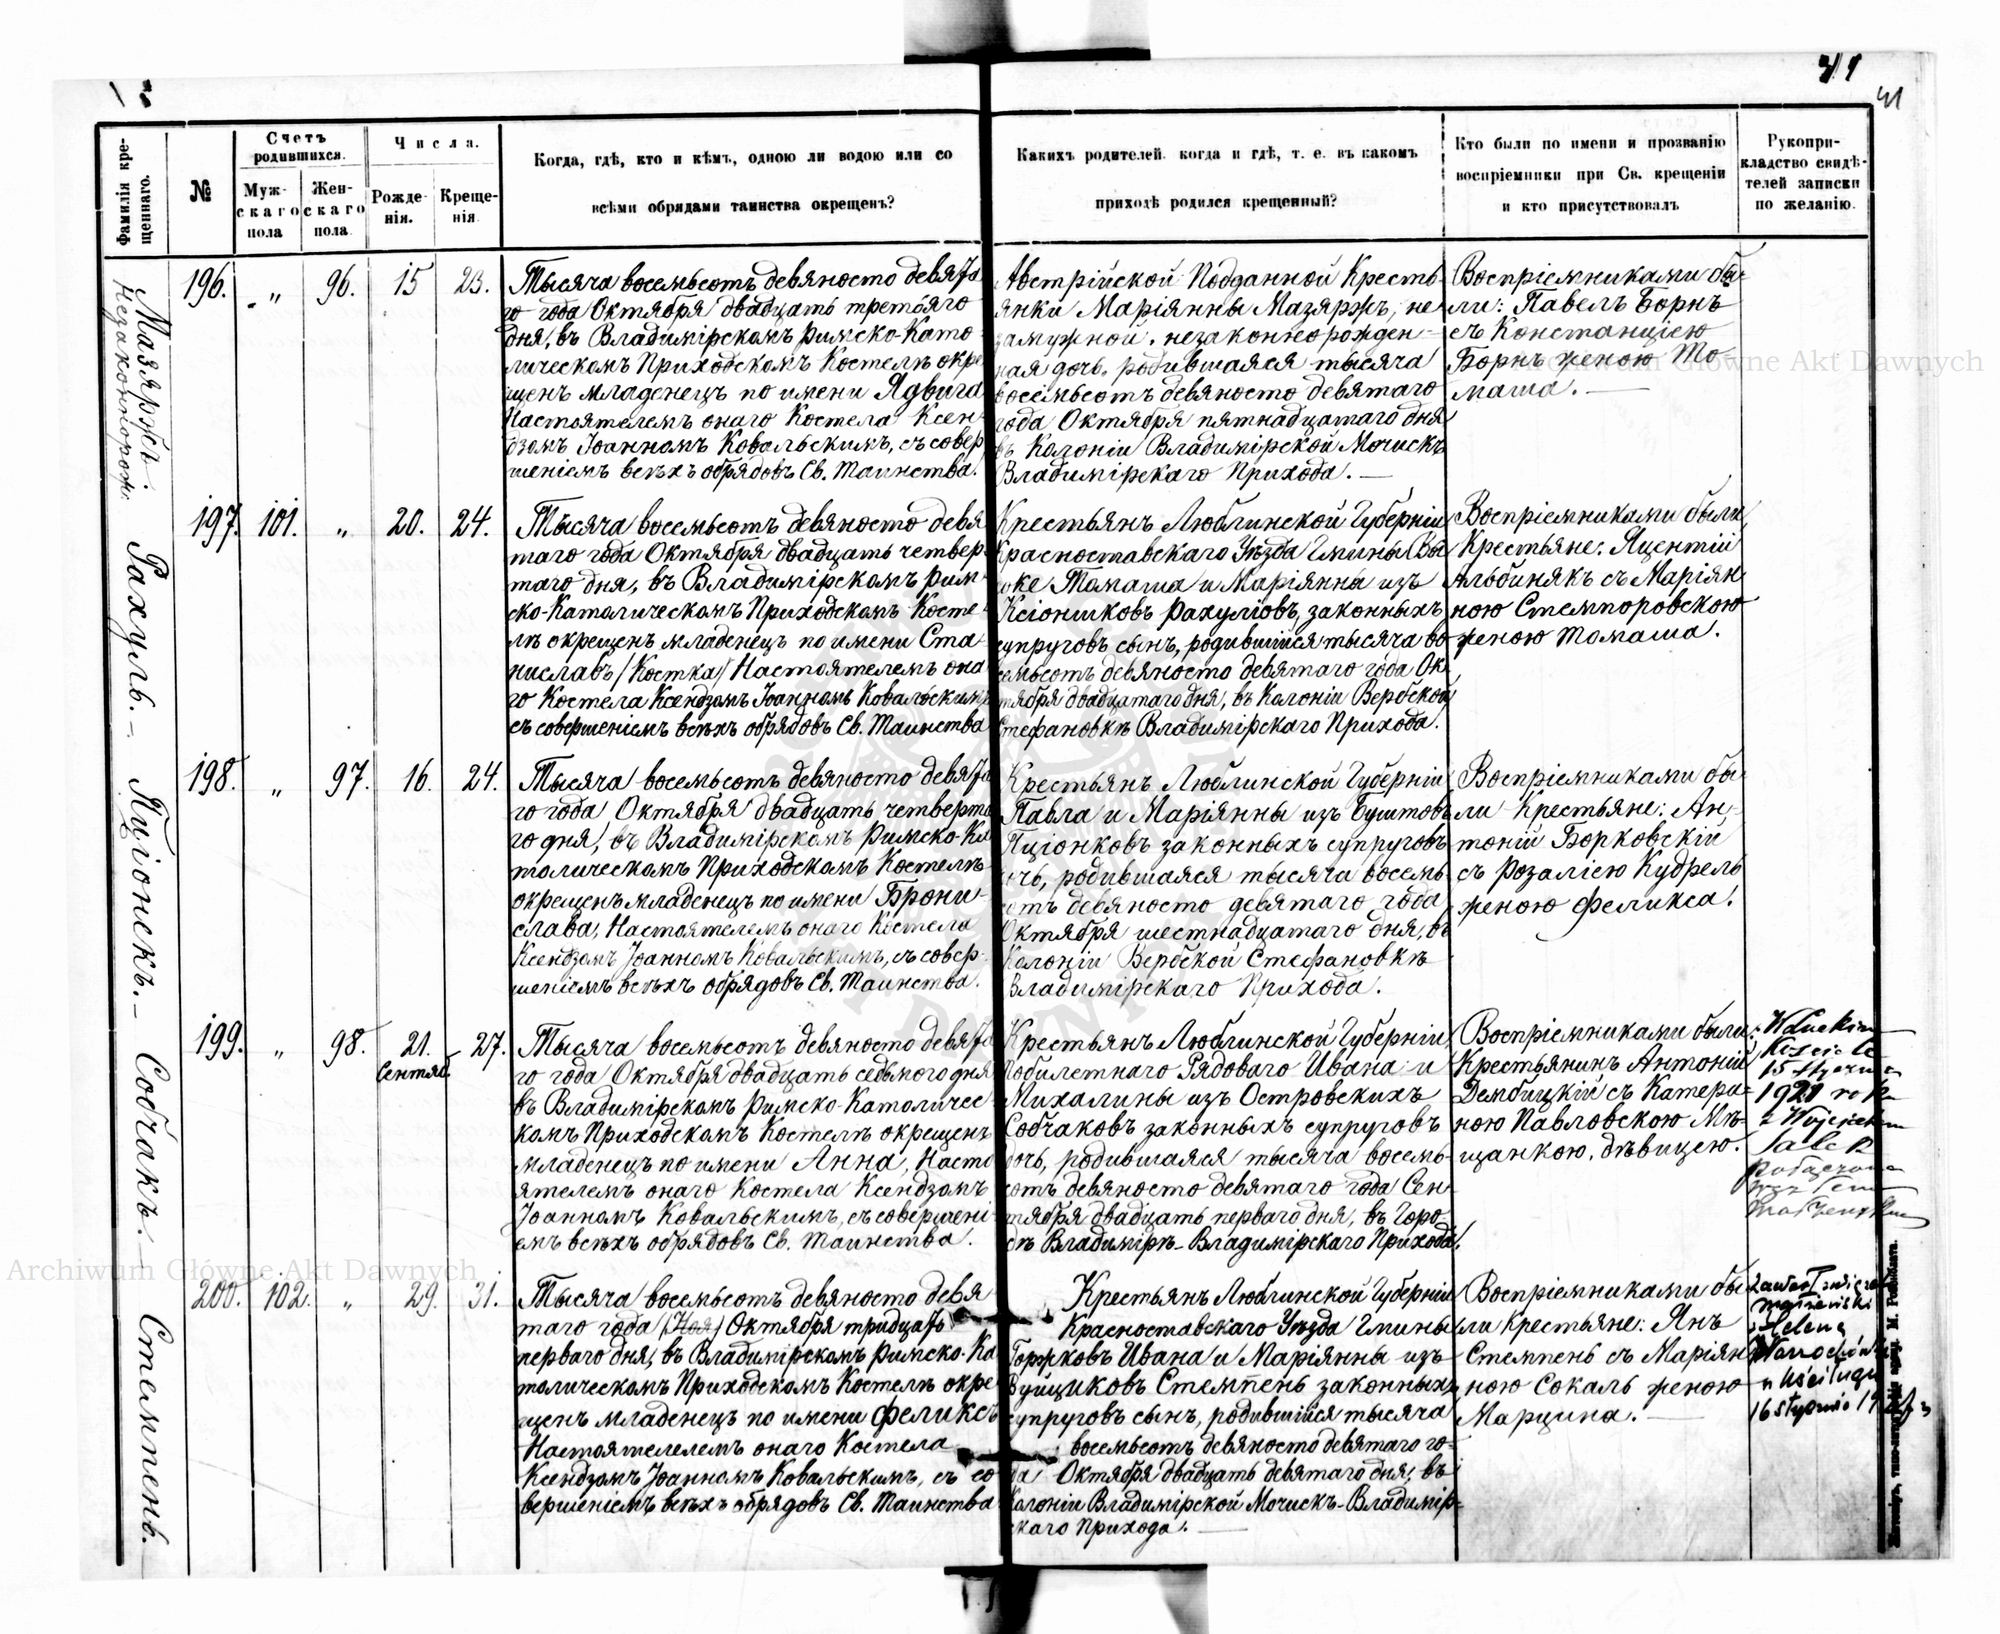 41
41
Фамилія кре-
щеннаго.
№
Счетъ
родившихся.
Муж-
скаго
пола
Жен-
скаго
пола.
Числа.
Рожде-
нія.
Креще-
нія.
Когда, гдѣ, кто и кѣмъ, одною ли водою или со
всѣми обрядами таинства окрещенъ?
Какихъ родителей, когда и гдѣ, т. е. въ какомъ
приходѣ родился крещенный?
Кто были по имени и прозванію
воспріемники при Св. крещеніи
и кто присутствовалъ
Рукопри-
кладство свидѣ-
телей записки
по желанію.
Мазяржъ.
Незаконнорожд.
196. „ 96. 15 23.
Тысяча восемьсотъ девяносто девята
го года Октября двадцать третьяго
дня, въ Владимірскомъ Римско-Като-
лическомъ Приходскомъ Костелѣ окре
щенъ младенецъ по имени Ядвига
Настоятелемъ онаго Костела Ксен-
дзомъ Іоанномъ Ковальскимъ, съ совер
шеніемъ всѣхъ обрядовъ Св. Таинства.
Австрійской Подданной Кресть
янки Маріянны Мазяржъ, не
замужной, незаконнорожден-
ная дочь, родившаяся тысяча
восемьсотъ девяносто девятаго
года Октября пятнадцатаго дня
въ Колоніи Владимірской Мочискъ
Владимірскаго Прихода.
Воспріемниками бы-
ли: Павелъ Борнъ
съ Констанціею
Борнъ женою То-
маша.
Рахуль.
197. 101. „ 20. 24.
Тысяча восемьсотъ девяносто девя
таго года Октября двадцать четвер-
таго дня, въ Владимірскомъ Рим-
ско-Католическомъ Приходскомъ Косте-
лѣ окрещенъ младенецъ по имени Ста-
ниславъ /Костка/ Настоятелемъ она
го Костела Ксендзомъ Іоанномъ Ковальскимъ
съ совершеніемъ всѣхъ обрядовъ Св. Таинства
Крестьянъ Люблинской Губерніи
Красноставскаго Уѣзда Гмины Вы
соке Томаша и Маріянны изъ
Ксіонжковъ Рахулювъ, законныхъ
супруговъ сынъ, родившійся тысяча во
семьсотъ девяносто девятаго года Ок-
тября двадцатаго дня, въ Колоніи Вербской
Стефановкѣ Владимірскаго Прихода.
Воспріемниками были
Крестьяне: Яцентій
Альбинякъ съ Маріян
ною Стемпоровскою
женою Томаша.
Пціонекъ.
198. „ 97. 16. 24.
Тысяча восемьсотъ девяносто девята
го года Октября двадцать четверта
го дня, въ Владимірскомъ Римско-Ка
толическомъ Приходскомъ Костелѣ
окрещенъ младенецъ по имени Брони-
слава, Настоятелемъ онаго Костела
Ксендзомъ Іоанномъ Ковальскимъ, съ совер-
шеніемъ всѣхъ обрядовъ Св. Таинства.
Крестьянъ Люблинской Губерніи
Павла и Маріянны изъ
Пціонковъ законныхъ супруговъ
дочь, родившаяся тысяча восемь-
сотъ девяносто девятаго года
Октября шестнадцатаго дня, въ
Колоніи Вербской Стефановкѣ
Владимірскаго Прихода.
Воспріемниками бы-
ли Крестьяне: Ан-
тоній Борковскій
съ Розаліею Кудрель
женою Феликса.
Собчакъ.
199. „ 98. 21. Сентяб. 27.
Тысяча восемьсотъ девяносто девята
го года Октября двадцать седьмого дня
въ Владимірскомъ Римско-Католичес
комъ Приходскомъ Костелѣ окрещенъ
младенецъ по имени Анна, Насто
ятелемъ онаго Костела Ксендзомъ
Іоанномъ Ковальскимъ, съ совершені-
емъ всѣхъ обрядовъ Св. Таинства.
Крестьянъ Люблинской Губерніи
Побилетнаго Рядоваго Ивана и
Михалины изъ Островскихъ
Собчаковъ законныхъ супруговъ
дочь, родившаяся тысяча восемь-
сотъ девяносто девятаго года Сен-
тября двадцать перваго дня, въ Горо-
дѣ Владимірѣ-Владимірскаго Прихода.
Воспріемниками были:
Крестьянинъ Антоній
Дембицкій съ Катери-
ною Павловскою Мѣ-
щанкою, дѣвицею.
Kościele
15 stycznia
1921 roku
z Wojciechem
Стемпень.
200. 102. „ 29. 31.
Тысяча восемьсотъ девяносто девя
таго года (Ноя) Октября тридцать
перваго дня, въ Владимірскомъ Римско-Ка
толическомъ Приходскомъ Костелѣ окре
щенъ младенецъ по имени Феликсъ
Настоятелелемъ онаго Костела
Ксендзомъ Іоанномъ Ковальскимъ, съ со
вершеніемъ всѣхъ обрядовъ Св. Таинства
Крестьянъ Люблинской Губерніи
Красноставскаго Уѣзда Гмины
Горжковъ Ивана и Маріянны изъ
Вуйциковъ Стемпень законныхъ
супруговъ сынъ, родившійся тысяча
восемьсотъ девяносто девятаго го-
да Октября двадцать девятаго дня, въ
Колоніи Владимірской Мочискъ-Владимір-
скаго Прихода.
Воспріемниками бы
ли Крестьяне: Янъ
Стемпень съ Маріян
ною Сокаль женою
Марцина.
Helena
w Uściługu
16 stycznia
Archiwum Główne Akt Dawnych
Archiwum Główne Akt Dawnych